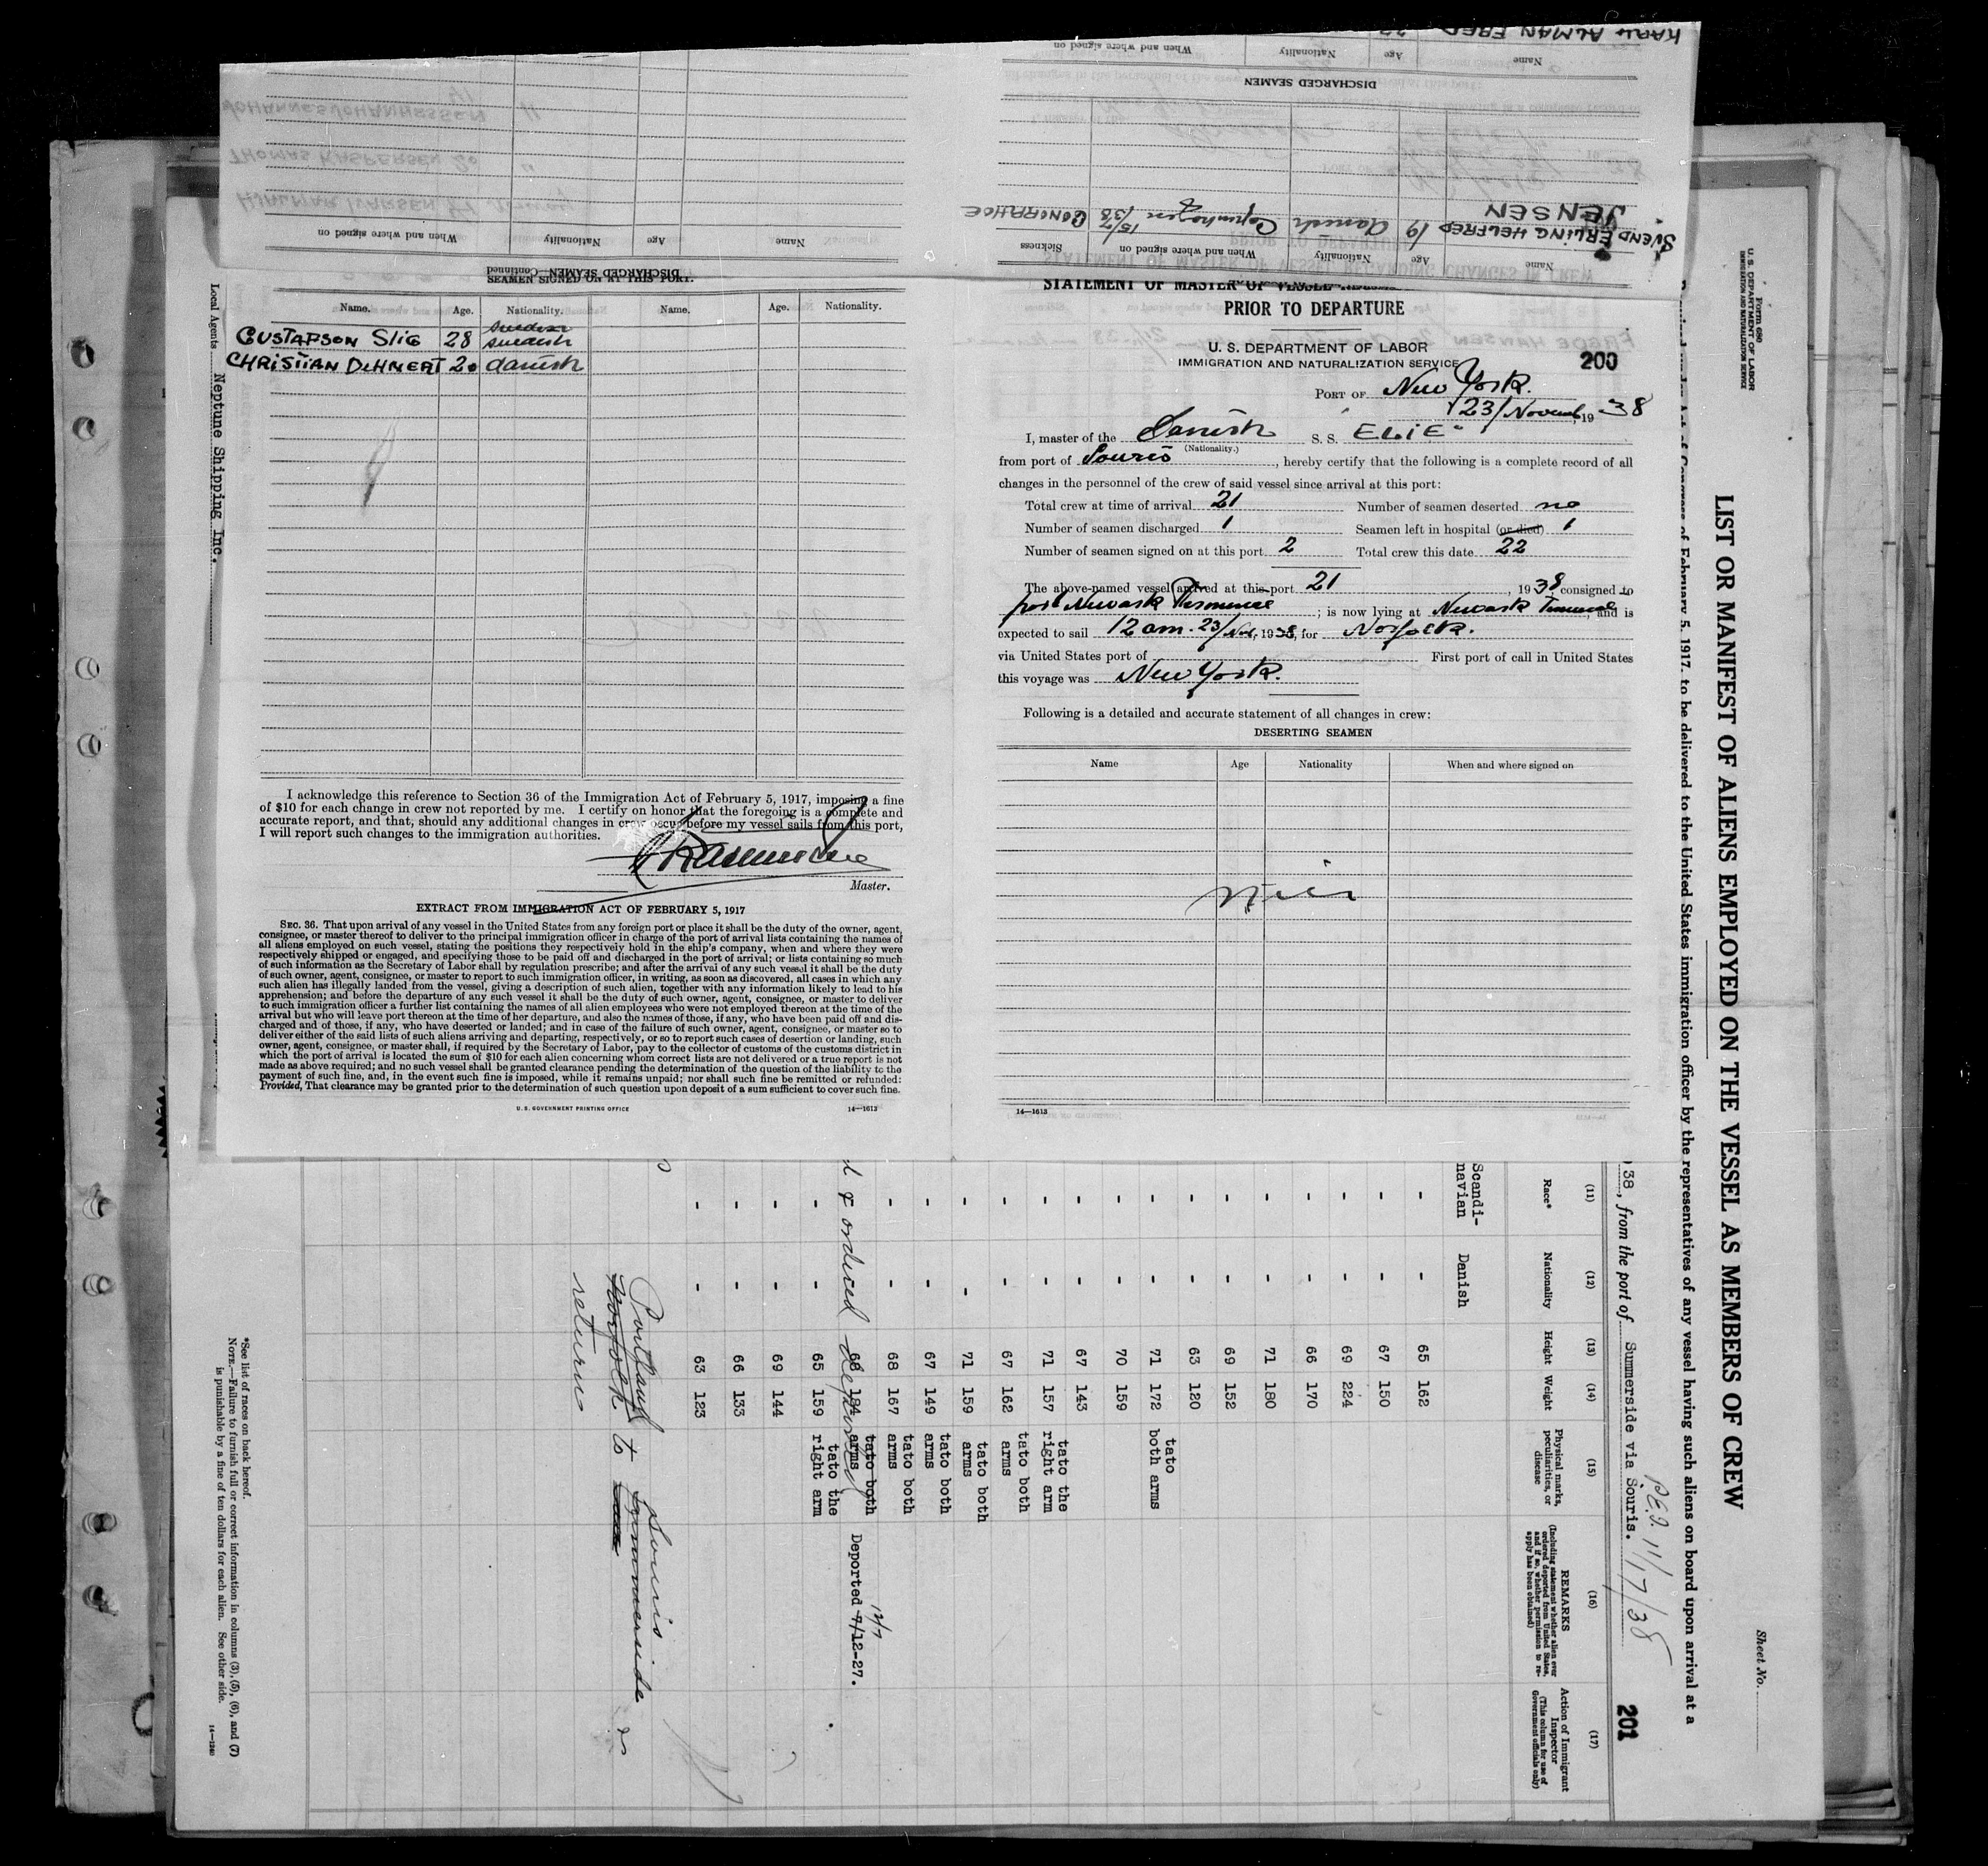 KARH ALMAN FRED 22
Name Age Nationality When and where signed on
DISCHARGED SEAMEN
SVEND ERLING HELFRED JENSEN 19 danish Copenhagen 15/7 138 GONORRHOE
Name Age Nationality When and where signed on Sickness
Name Age Nationality When and where signed on
DISCHARGED SEAMEN—Continued
SEAMEN SIGNED ON AT THIS PORT.
Name. Age. Nationality. Name. Age. Nationality.
swedish
GUSTAPSON Slig 28 swedish
CHRISTIAN DEHMERT 20 danish
I acknowledge this reference to Section 36 of the Immigration Act of February 5, 1917, imposing a fine
of $10 for each change in crew not reported by me. I certify on honor that the foregoing is a complete and
accurate report, and that, should any additional changes in crew occur before my vessel sails from this port,
I will report such changes to the immigration authorities.
Master.
EXTRACT FROM IMMIGRATION ACT OF FEBRUARY 5, 1917
SEC. 36. That upon arrival of any vessel in the United States from any foreign port or place it shall be the duty of the owner, agent,
consignee, or master thereof to deliver to the principal immigration officer in charge of the port of arrival lists containing the names of
all aliens employed on such vessel, stating the positions they respectively hold in the ship's company, when and where they were
respectively shipped or engaged, and specifying those to be paid off and discharged in the port of arrival; or lists containing so much
of such information as the Secretary of Labor shall by regulation prescribe; and after the arrival of any such vessel it shall be the duty
of such owner, agent, consignee, or master to report to such immigration officer, in writing, as soon as discovered, all cases in which any
such alien has illegally landed from the vessel, giving a description of such alien, together with any information likely to lead to his
apprehension; and before the departure of any such vessel it shall be the duty of such owner, agent, consignee, or master to deliver
to such immigration officer a further list containing the names of all alien employees who were not employed thereon at the time of the
arrival but who will leave port thereon at the time of her departure, and also the names of those, if any, who have been paid off and dis-
charged and of those, if any, who have deserted or landed; and in case of the failure of such owner, agent, consignee, or master so to
deliver either of the said lists of such aliens arriving and departing, respectively, or so to report such cases of desertion or landing, such
owner, agent, consignee, or master shall, if required by the Secretary of Labor, pay to the collector of customs of the customs district in
which the port of arrival is located the sum of $10 for each alien concerning whom correct lists are not delivered or a true report is not
made as above required; and no such vessel shall be granted clearance pending the determination of the question of the liability to the
payment of such fine, and, in the event such fine is imposed, while it remains unpaid; nor shall such fine be remitted or refunded:
Provided, That clearance may be granted prior to the determination of such question upon deposit of a sum sufficient to cover such fine.
U.S. GOVERNMENT PRINTING OFFICE 14—1613
STATEMENT OF MASTER OF VESSEL
PRIOR TO DEPARTURE
U. S. DEPARTMENT OF LABOR
IMMIGRATION AND NATURALIZATION SERVICE
200
PORT OF New York.
23/Novemb, 1938
I, master of the Danish S. S. ELIE
(Nationality.)
from port of Souris, hereby certify that the following is a complete record of all
changes in the personnel of the crew of said vessel since arrival at this port:
Total crew at time of arrival 21 Number of seamen deserted no
Number of seamen discharged 1 Seamen left in hospital (or died) 1
Number of seamen signed on at this port 2 Total crew this date 22
The above-named vessel arrived at this port 21, 1938 consigned to
port Newark Terminal; is now lying at Newark Terminal, and is
expected to sail 12 am. 23/Nov, 1938, for Norfolk.
via United States port of First port of call in United States
this voyage was New York.
Following is a detailed and accurate statement of all changes in crew:
DESERTING SEAMEN
Name Age Nationality When and where signed on
Nil
14—1613
Form 680
U. S. DEPARTMENT OF LABOR
IMMIGRATION AND NATURALIZATION SERVICE
Sheet No.
LIST OR MANIFEST OF ALIENS EMPLOYED ON THE VESSEL AS MEMBERS OF CREW
of February 5, 1917, to be delivered to the United States immigration officer by the representatives of any vessel having such aliens on board upon arrival at a
38, from the port of Summerside via Souris. P.E.I. 11/17/38
201
(11) (12) (13) (14) (15) (16) (17)
Race* Nationality Height Weight Physical marks, peculiarities, or disease REMARKS (Including statement whether alien ever ordered deported from United States, and if so, whether permission to reapply has been obtained) Action of Immigrant Inspector (This column for use of Government officials only)
Scandi-navian Danish
- - 65 162
- - 67 150
- - 69 224
- - 66 170
- - 71 180
- - 69 152
- - 63 120
- - 71 172 tato both arms
- - 70 159
- - 67 143
- - 71 157 tato the right arm
- - 67 162 tato both arms
- - 71 159 tato both arms
- - 67 149 tato both arms
- - 68 167 tato both arms
68 184 tato both arms Deported 7/12-27. 12/7
& ordered deported
- - 65 159 tato the right arm
- - 69 144
- - 66 133
- - 63 123
Portland Souris
Norfolk to Summerside
return
*See list of races on back hereof.
NOTE.—Failure to furnish full or correct information in columns (3), (5), (6), and (7)
is punishable by a fine of ten dollars for each alien. See other side.
14—1240
Local Agents Neptune Shipping Inc.